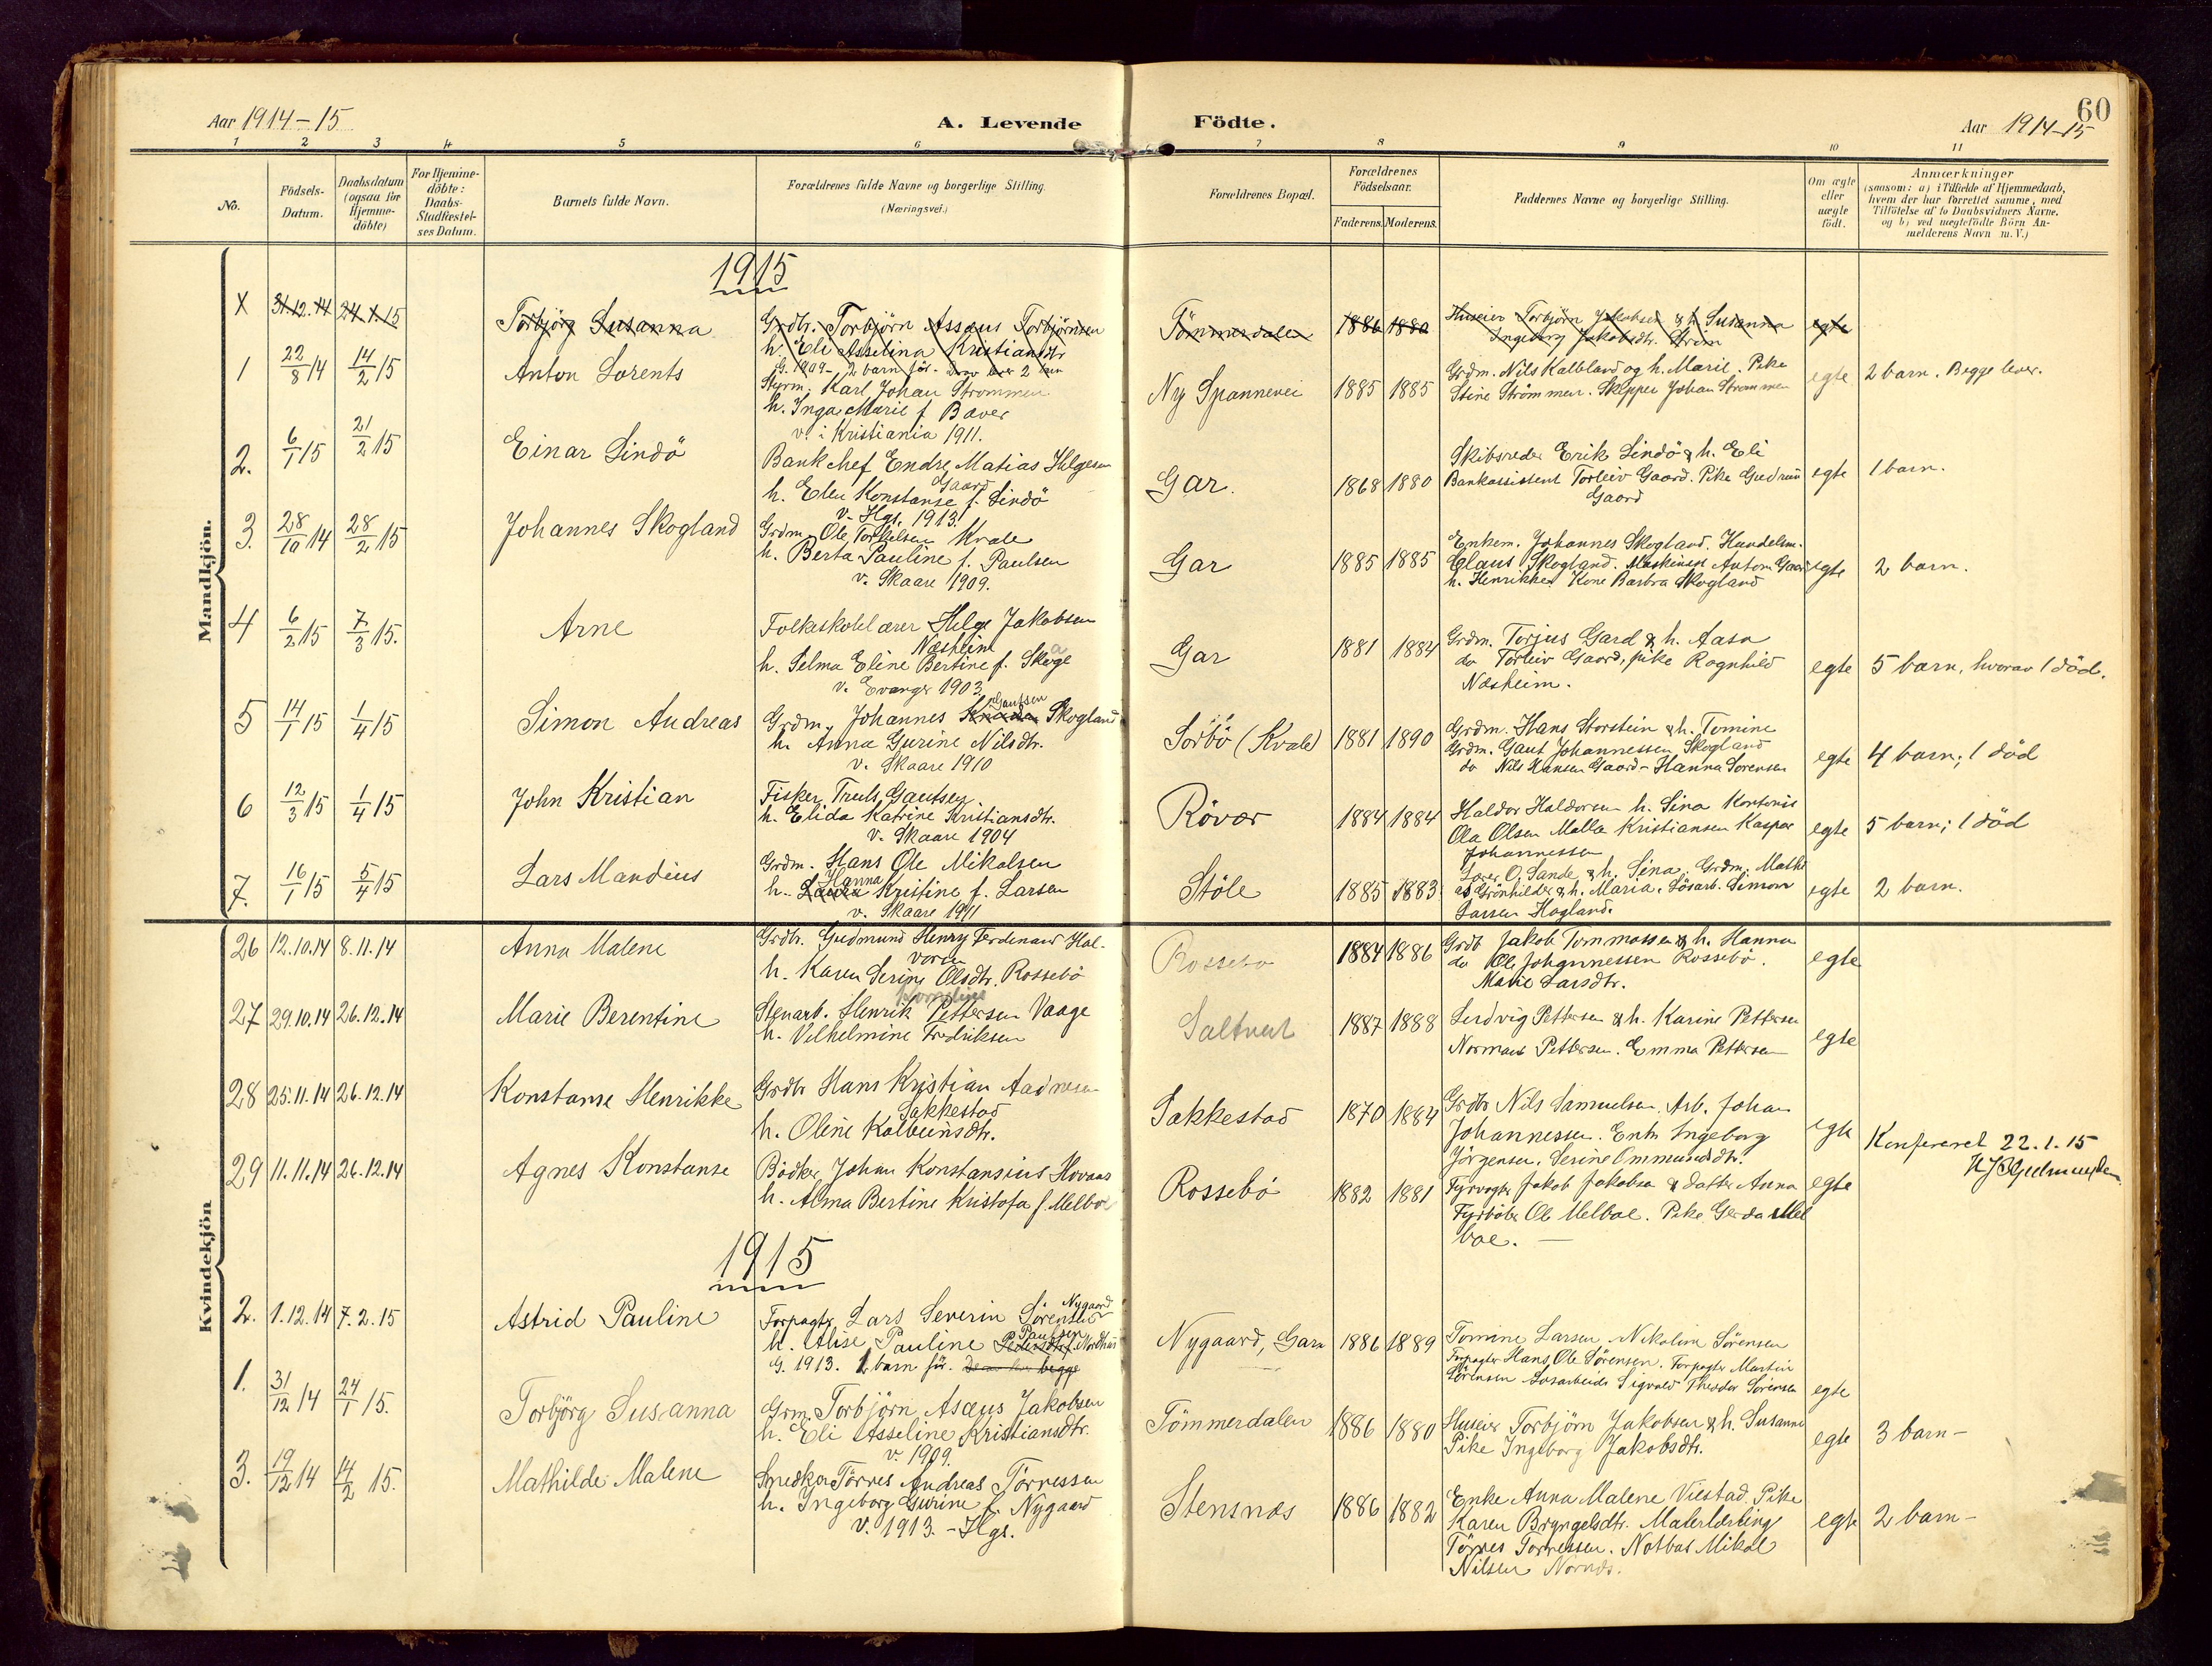 60
Aar 1914-15
A. Levende
Födte.
Aar 1914-15
1 2 3 4 5 6 7 8 9 10 11
No.
Födsels-
Datum.
Daabsdatum
(ogsaa for
Hjemme-
döbte)
For Hjemme-
döbte:
Daabs-
Stadfæstel-
ses Datum.
Barnets fulde Navn.
Forældrenes fulde Navne og borgerlige Stilling.
(Næringsvei.)
Forældrenes Bopæl.
Forældrenes
Födselsaar.
Faderens. Moderens.
Faddernes Navne og borgerlige Stilling.
Om ægte
eller
uægte
födt.
Anmærkninger
(saasom: a) i Tilfælde af Hjemmedaab,
hvem der har forrettet samme, med
Tilföielse af to Daabsvidners Navne.
og b) ved uægtefödte Börn An-
melderens Navn m. V.)
Mandkjön.
1915
X 31.12.14 24.1.15
Torbjörg Susanna
Grdbr. Torbjörn Assæus Torbjörnsen
h. Eli Asselina Kristiansdtr
G. 1909 - 2 barn för.
Tömmerdalen
1886 1880
Huseier Torbjörn Jakobsen & h. Susanna
Ingeborg Jakobsdtr.
egte
1 22/8 14 14/2 15
Anton Lorents
Styrm. Karl Johan Strömmen
h. Inga Marie f. Baver
v. i Kristiania 1911.
Ny Spannevei
1885 1885
Grdm. Nils Kalbland og h. Marie. Pike
Stine Strömmen. Skipper Johan Strömmen
egte
2 barn. Begge lever.
2. 6/1 15 21/2 15
Einar Lindö
Bankchef Endre Matias Helgesen
Gaard
h. Elen Konstanse f. Lindö
v. Hgs. 1913.
Gar.
1868 1880
Skibsreder Erik Lindö & h. Eli
Bankassistent Torleiv Gaard. Pike Gudrun
Gaard
egte
1 barn.
3. 28/10 14 28/2 15
Johannes Skogland
Grdm. Ole Torkelsen Kvale
h. Berta Pauline f. Paulsen
v. Skaare 1909.
Gar
1885 1885
Enkem. Johannes Skogland. Handelsm.
Claus Skogland. Maskinist Anton Gaard
h. Henrikke. Kone Barbra Skogland
egte
2 barn.
4 6/2 15 7/3 15.
Arne
Folkeskolelærer Helge Jakobsen
Næsheim
h. Selma Eline Bertine f. Skoge
v. Evanger 1903
Gar
1881 1884
Grdm. Torjus Gard & h. Aasa
do Torleiv Gaard, pike Ragnhild
Næsheim.
egte
5 barn, hvorav 1 död.
5 14/1 15 1/4 15
Simon Andreas
Gautsen
Grdm. Johannes Skogland
h. Anna Gurine Nilsdtr.
v. Skaare 1910
Sörbö (Kvale)
1881 1890
Grdm. Hans Storstein & h. Tomine
Grdm. Gaut Johannessen Skogland
do Nils Hansen Gaard - Hanna Sorensen
egte
4 barn; 1 död
6 12/3 15 1/4 15
John Kristian
Fisker Truls Gautsen
h. Elida Katrine Kristiansdtr.
v. Skaare 1904
Rövær
1884 1884
Haldor Haldorsen h. Sina
Ola Olsen Malla Kristiansen Kaspar
Johannessen
egte
5 barn; 1 död
7. 16/1 15 5/4 15
Lars Mandius
Grdm. Hans Ole Mikalsen
Hanna
h. Laura Kristine f. Larsen
v. Skaare 1911
Stöle
1885 1883
O. Sande & h. Sina. Grdm. Mathi
as Grönhilder & h. Maria. Lösarb. Simon
Larsen Hogland.
egte
2 barn.
Kvindekjön
26 12.10.14 8.11.14
Anna Malene
Grdbr. Gudmund Henry Ferdinand Hal-
vorsen
h. Karen Serine Olsdtr. Rossebö
Rossebö
1884 1886
Grdb Jakob Tommassen & h. Hanna
do Ole Johannessen Rossebö.
Marie Larsdtr.
egte
27 29.10.14 26.12.14
Marie Berentine
Stenarb. Henrik Pettersen Vaage
h. Vilhelmine Fredriksen
Saltveit
1887 1888
Ludvig Pettersen & h. Karine Pettersen
Normand Pettersen. Emma Pettersen
egte
28 25.11.14 26.12.14
Konstanse Henrikke
Grdbr Hans Kristian Aadnesen
Sakkestad
h. Oline Kolbeinsdtr.
Sakkestad
1870 1884
Grdbr Nils Samuelsen. Arb. Johan
Johannessen. Enke Ingeborg
Jörgensen. Serine Ommundsdtr.
egte
Konfereret 22.1.15
29 11.11.14 26.12.14
Agnes Konstanse
Bödker Johan Konstansius Hovaas
h. Alma Bertine Kristofa f. Melboe
Rossebö
1882 1881
Fyrvogter Jakob Jakobsen & datter Anna
Fyrböter Ole Melboe. Pike Gerda Mel
boe. —
egte
1915
2. 1.12.14 7.2.15
Astrid Pauline
Nygaard
Forpagter Lars Severin Sörensen
Paulsen
h. Alise Pauline Pedersdtr. Nordhus
G. 1913. 1 barn för. begge
Nygaard, Gara
1886 1889
Tomine Larsen. Nikoline Sörensen
Forpagter Hans Ole Sörensen. Forpagter Martin
Sörensen Lösarbeider Sigvald Theodor Sörensen
egte
1. 31/12 14 24/1 15.
Torbjörg Susanna
Grm. Torbjörn Asæus Jakobsen
h. Eli Asseline Kristiansdtr.
v. 1909.
Tömmerdalen
1886 1880
Huseier Torbjörn Jakobsen & h. Susanne
Pike Ingeborg Jakobsdtr.
egte
3 barn -
3. 19/12 14 14/2 15.
Mathilde Malene
Snedker Törres Andreas Törressen
h. Ingeborg Gurine f. Nygaard
v. 1913. - Hgs.
Stensnæs
1886 1882
Enke Anna Malene Viestad. Pike
Karen Bryngelsdtr. Malerlærling
Törres Torressen. Notbas Mikal
Nilsen
egte
2 barn -